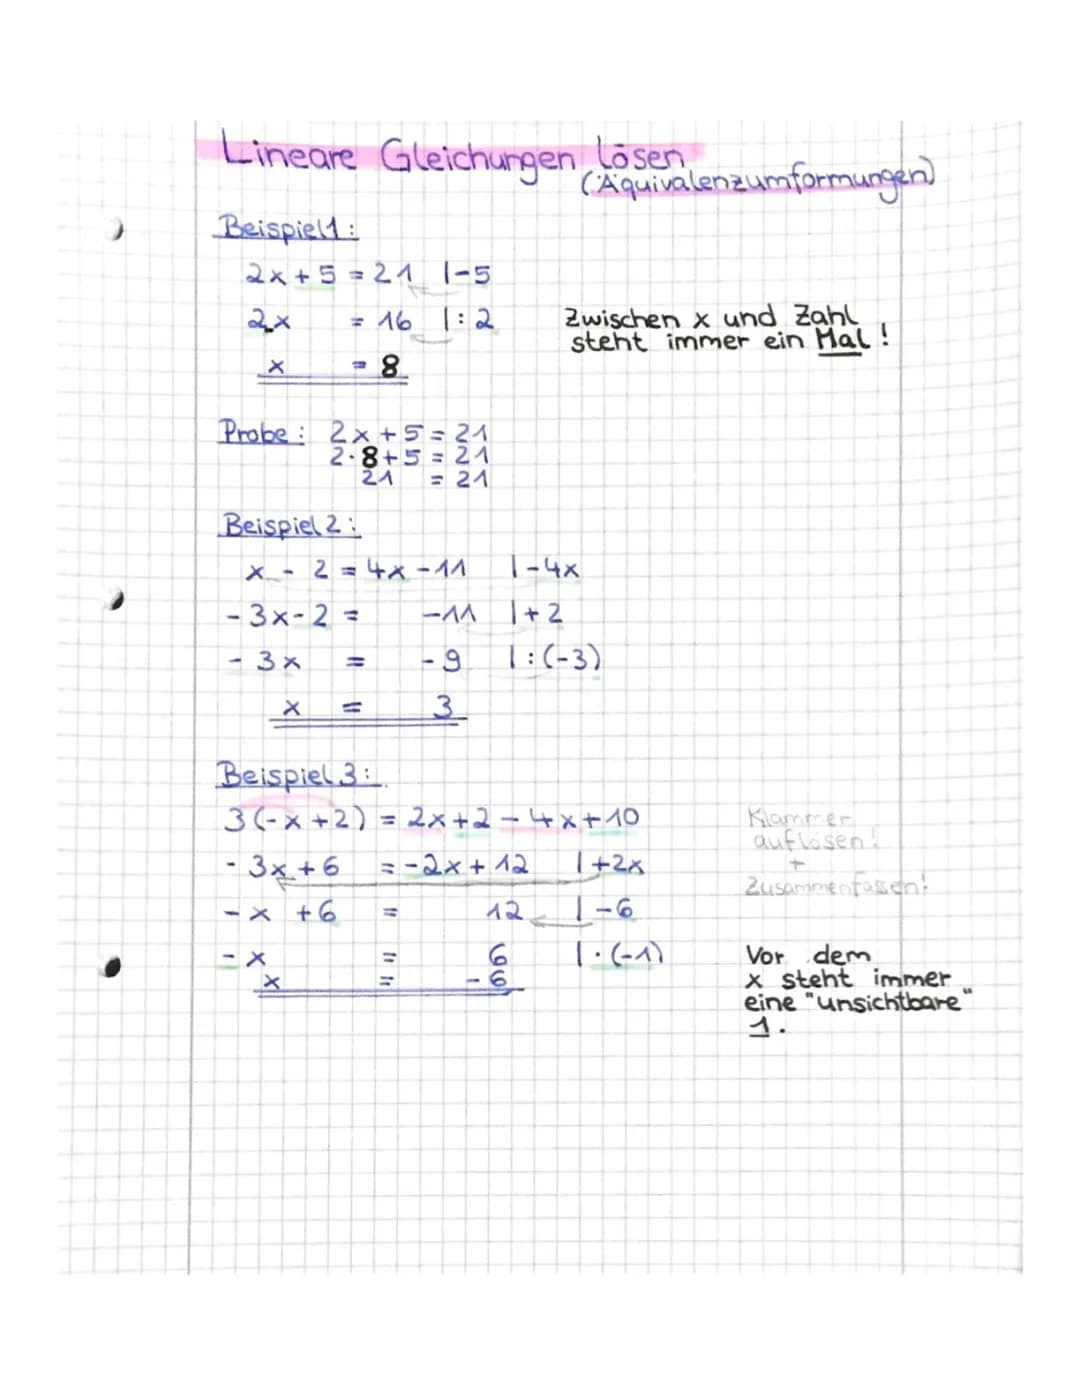 Lineare Gleichungen lösen
(Äquivalenzumformungen)
Beispiel 1:
2x + 5 = 21 |-5
2x = 16 |: 2
Zwischen x und Zahl
steht immer ein Mal!
x = 8
Probe: 2x + 5 = 21
2·8 + 5 = 21
21 = 21
Beispiel 2:
x - 2 = 4x - 11 |-4x
- 3x - 2 = -11 |+2
- 3x = - 9 |:(-3)
x = 3
Beispiel 3:
3(-x + 2) = 2x + 2 - 4x + 10
Klammer
auflösen!
+
Zusammenfassen!
- 3x + 6 = -2x + 12 |+2x
- x + 6 = 12 |-6
- x = 6 |·(-1)
x = - 6
Vor dem
x steht immer
eine "unsichtbare"
1.